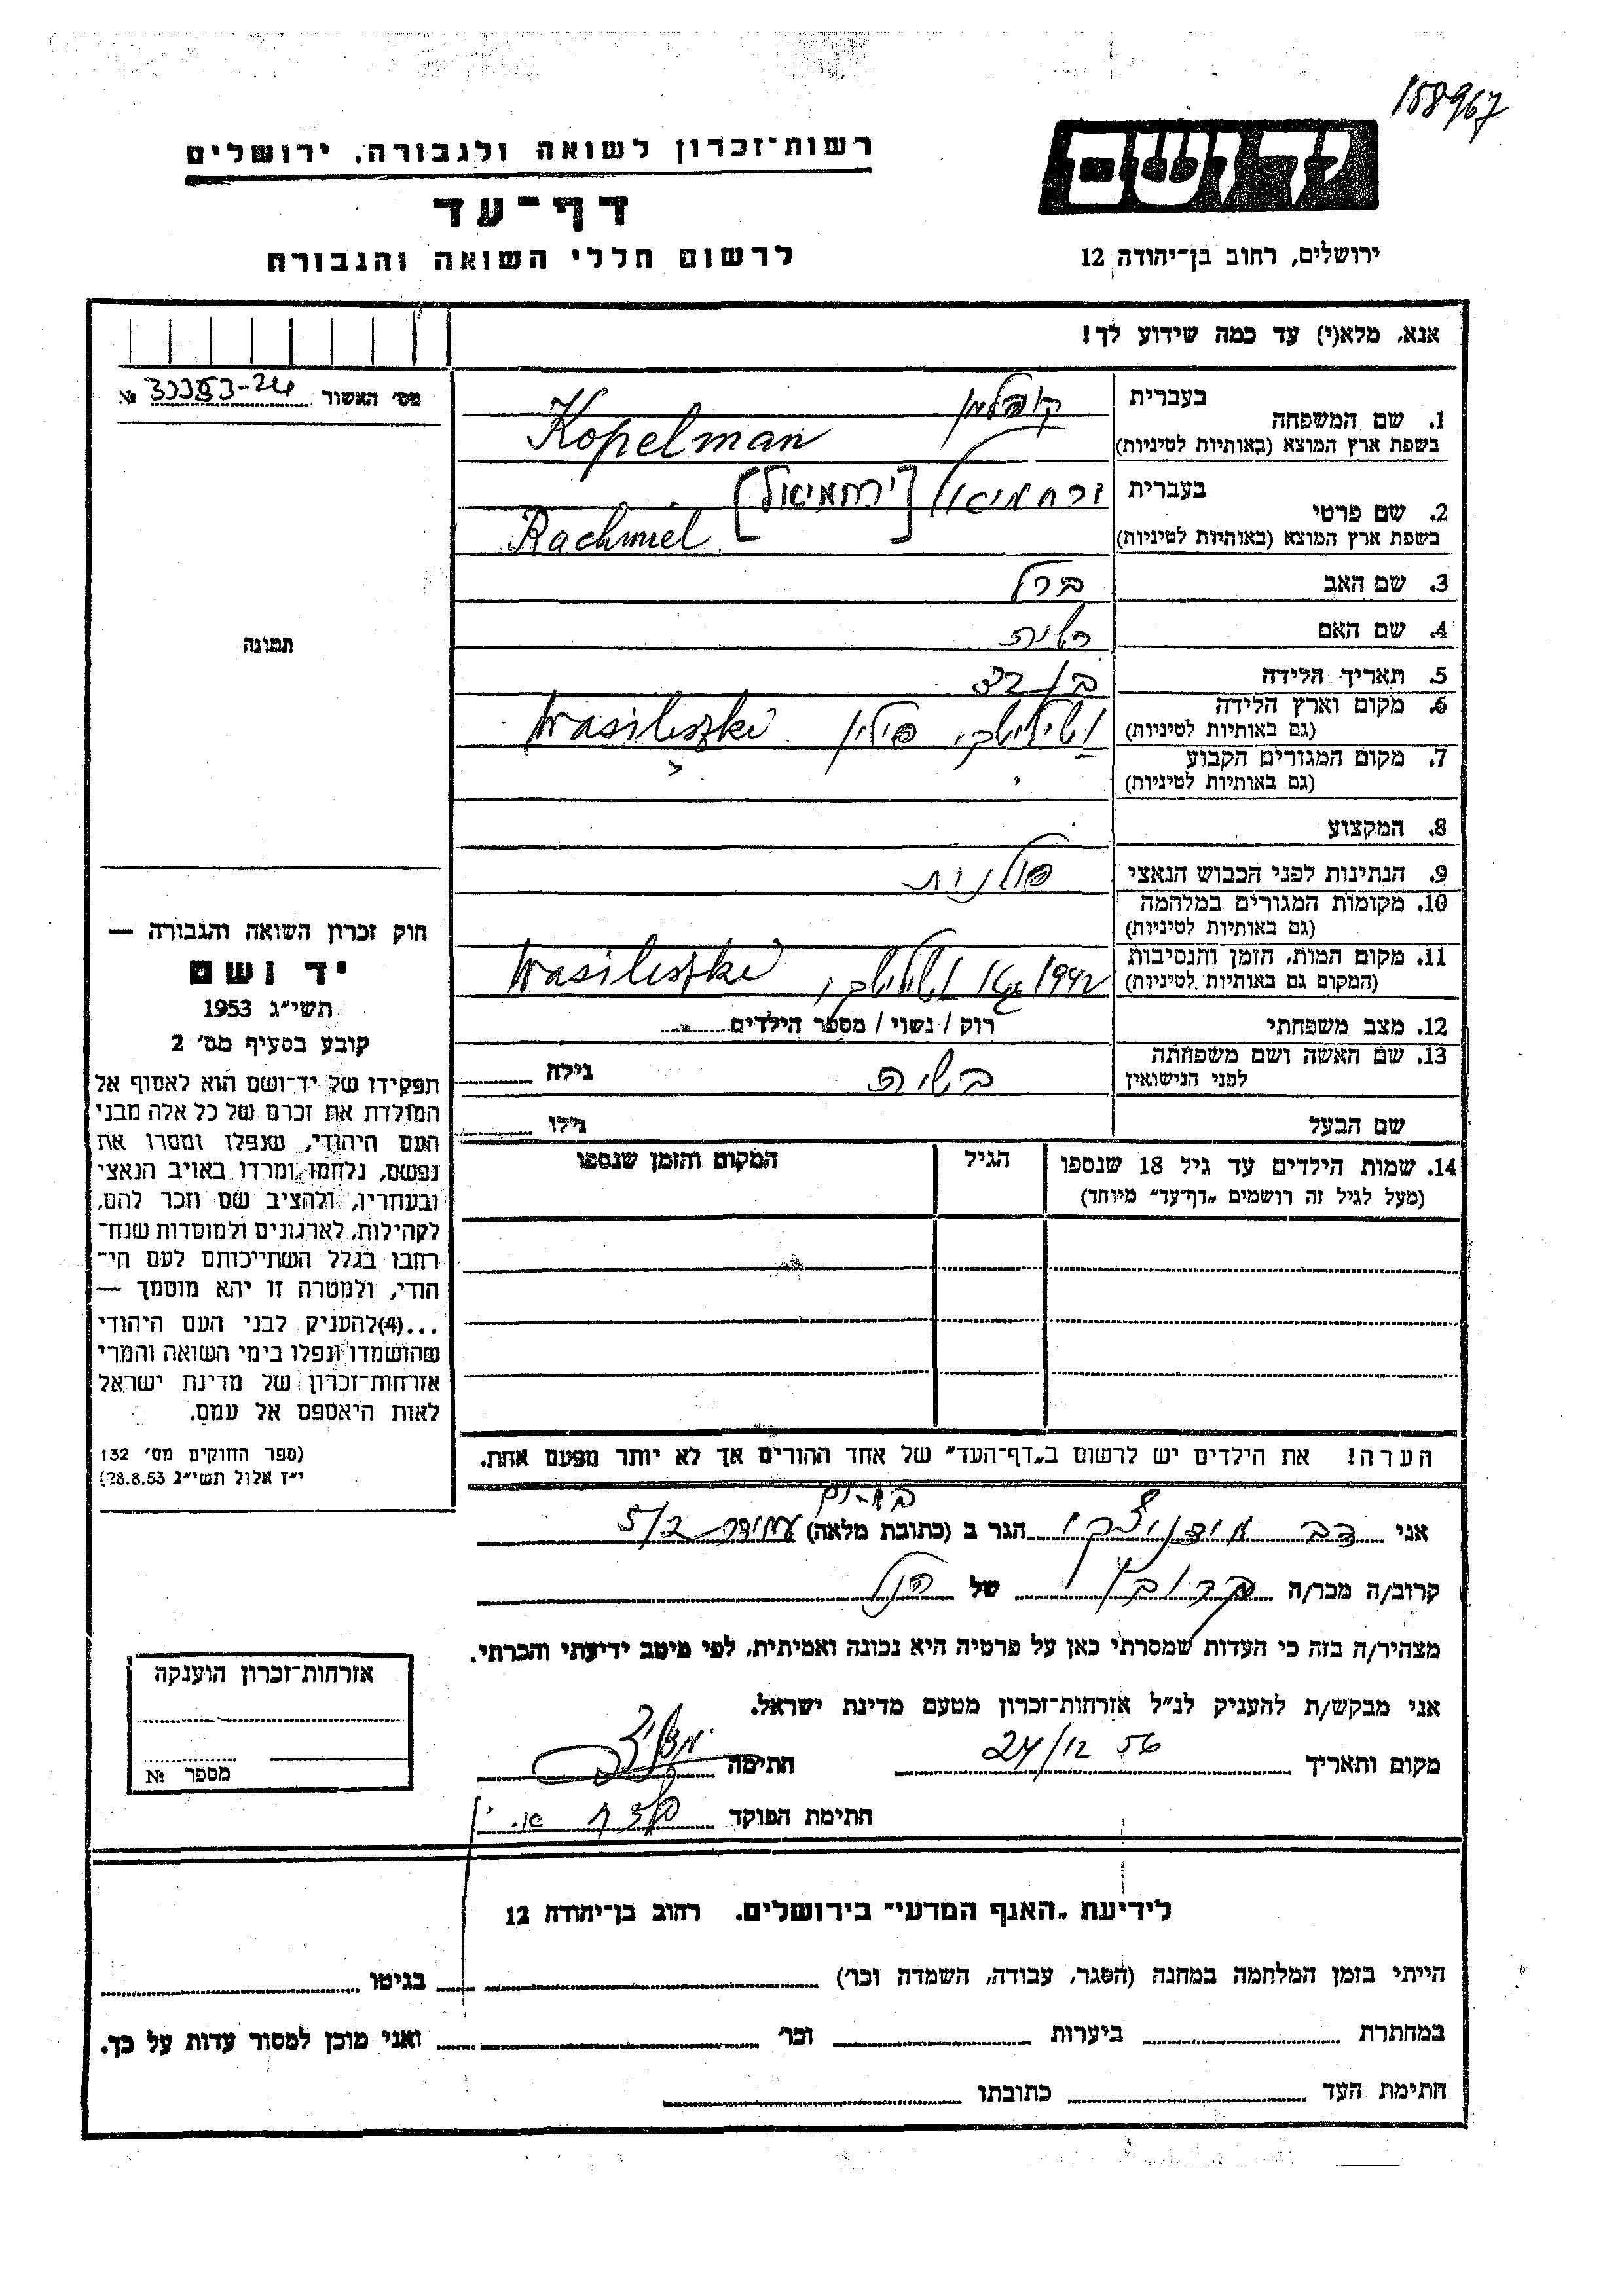 158967
יד ושם
רשות־זכרון לשואה ולגבורה, ירושלים
דף־עד
לרשום חללי השואה והגבורה
ירושלים, רחוב בן־יהודה 12
אנא, מלא(י) עד כמה שידוע לך!
מס׳ האשור № 33353-24
תמונה
1. שם המשפחה
בעברית קופלמן
בשפת ארץ המוצא (באותיות לטיניות) Kopelman
2. שם פרטי
בעברית ורחמיאל [ירחמיאל]
בשפת ארץ המוצא (באותיות לטיניות) Rachmiel
3. שם האב ברל
4. שם האם
5. תאריך הלידה בן 32
6. מקום וארץ הלידה ושילישקי, פולין Wasiliszki
(גם באותיות לטיניות)
7. מקום המגורים הקבוע
(גם באותיות לטיניות)
8. המקצוע
9. הנתינות לפני הכבוש הנאצי פולנית
10. מקומות המגורים במלחמה
(גם באותיות לטיניות)
11. מקום המות, הזמן והנסיבות 1942 Wasiliszki
(המקום גם באותיות לטיניות)
12. מצב משפחתי רוק / נשוי / מספר הילדים
13. שם האשה ושם משפחתה
לפני הנישואין
גילה
שם הבעל
גילו
14. שמות הילדים עד גיל 18 שנספו
(מעל לגיל זה רושמים „דף־עד״ מיוחד)
הגיל
המקום והזמן שנספו
הערה! את הילדים יש לרשום ב„דף־העד״ של אחד ההורים אך לא יותר מפעם אחת.
חוק זכרון השואה והגבורה —
יד ושם
תשי״ג 1953
קובע בסעיף מס׳ 2
תפקידו של יד־ושם הוא לאסוף אל
המולדת את זכרם של כל אלה מבני
העם היהודי, שנפלו ומסרו את
נפשם, נלחמו ומרדו באויב הנאצי
ובעוזריו, ולהציב שם וזכר להם,
לקהילות, לארגונים ולמוסדות שנח־
רחבו בגלל השתייכותם לעם הי־
הודי, ולמטרה זו יהא מוסמך —
...(4)להעניק לבני העם היהודי
שהושמדו ונפלו בימי השואה והמרי
אזרחות־זכרון של מדינת ישראל
לאות היאספם אל עמם.
(ספר החוקים מס׳ 132
י״ז אלול תשי״ג 28.8.53)
אני דב הגר ב (כתובת מלאה) 5/2
קרוב/ה מכר/ה קרובו של הנ״ל
מצהיר/ה בזה כי העדות שמסרתי כאן על פרטיה היא נכונה ואמיתית, לפי מיטב ידיעתי והכרתי.
אני מבקש/ת להעניק לנ״ל אזרחות־זכרון מטעם מדינת ישראל.
מקום ותאריך 24/12 56 חתימה
חתימת הפוקד
אזרחות־זכרון הוענקה
מספר №
לידיעת „האגף המדעי״ בירושלים. רחוב בן־יהודה 12
הייתי בזמן המלחמה במחנה (הסגר, עבודה, השמדה וכו׳) בגיטו
במחתרת ביערות וכו׳ ואני מוכן למסור עדות על כך.
חתימת העד כתובתו